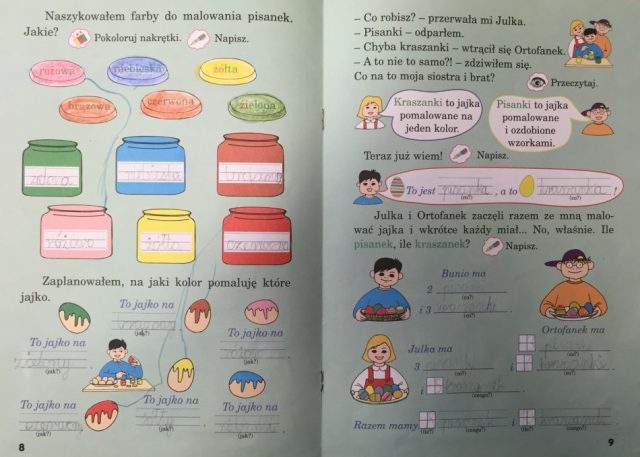 Naszykowałem farby do malowania pisanek.
Jakie? Pokoloruj nakrętki. Napisz.
różowa niebieska żółta
brązowa czerwona zielona
zielona niebieska
różowa żółta czerwona
Zaplanowałem, na jaki kolor pomaluję które
jajko.
To jajko na
(jak?)
To jajko na
zielony
(jak?)
To jajko na
(jak?)
To jajko na
czerwony
(jak?)
To jajko na
(jak?)
To jajko na
(jak?)
8
– Co robisz? – przerwała mi Julka.
– Pisanki – odparłem.
– Chyba kraszanki – wtrącił się Ortofanek.
– A to nie to samo?! – zdziwiłem się.
Co na to moja siostra i brat? Przeczytaj.
Kraszanki to jajka
pomalowane na
jeden kolor.
Pisanki to jajka
pomalowane
i ozdobione
wzorkami.
Teraz już wiem! Napisz.
To jest pisanka, a to kraszanka!
(co?) (co?)
Julka i Ortofanek zaczęli razem ze mną malo-
wać jajka i wkrótce każdy miał... No, właśnie. Ile
pisanek, ile kraszanek? Napisz.
Bunio ma
2 pisanki
(co?)
i 3 kraszanki.
(co?)
Ortofanek ma
(co?)
i kraszanki.
(co?)
Julka ma
3 pisanki
(co?)
i
(czego?)
Razem mamy
(ile?) (czego?)
i
(ile?) (czego?)
9